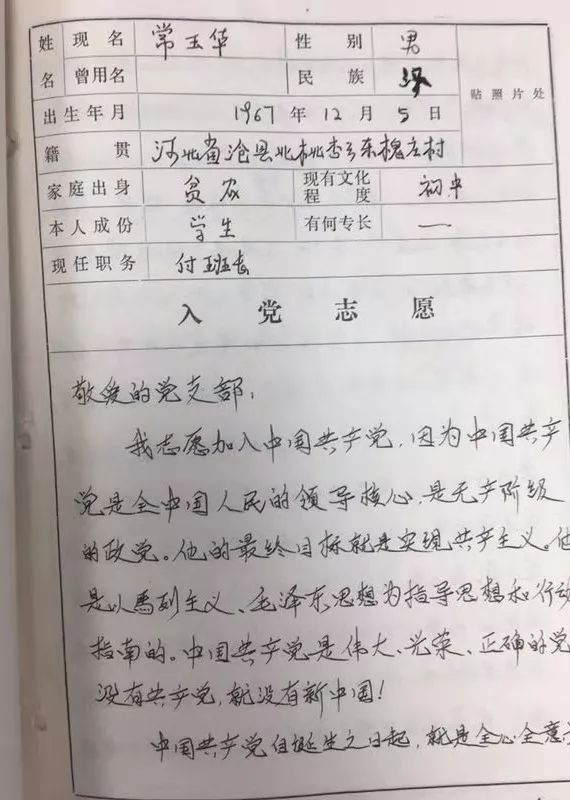 姓名 现名 常玉华 性别 男
曾用名 民族 汉 贴照片处
出生年月 1967年12月5日
籍贯 河北省沧县北桃杏乡东槐庄村
家庭出身 贫农 现有文化程度 初中
本人成份 学生 有何专长 一
现任职务 付班长
入党志愿
敬爱的党支部:
我志愿加入中国共产党,因为中国共产
党是全中国人民的领导核心,是无产阶级
的政党。他的最终目标就是实现共产主义。他
是以馬列主义、毛泽东思想为指导思想和行动
指南的。中国共产党是伟大、光荣、正确的党
没有共产党,就没有新中国!
中国共产党自挺生之日起,就是全心全意